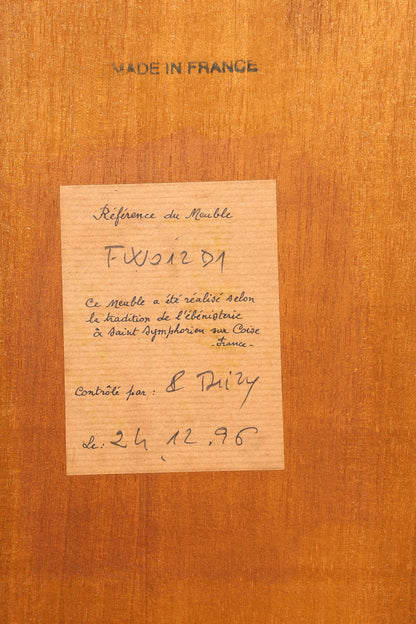 MADE IN FRANCE
Référence du Meuble
Ce Meuble a été réalisé selon
la tradition de l'ébénisterie
à Saint Symphorien sur Coise
- France -
Contrôlé par :
Le : 24.12.96